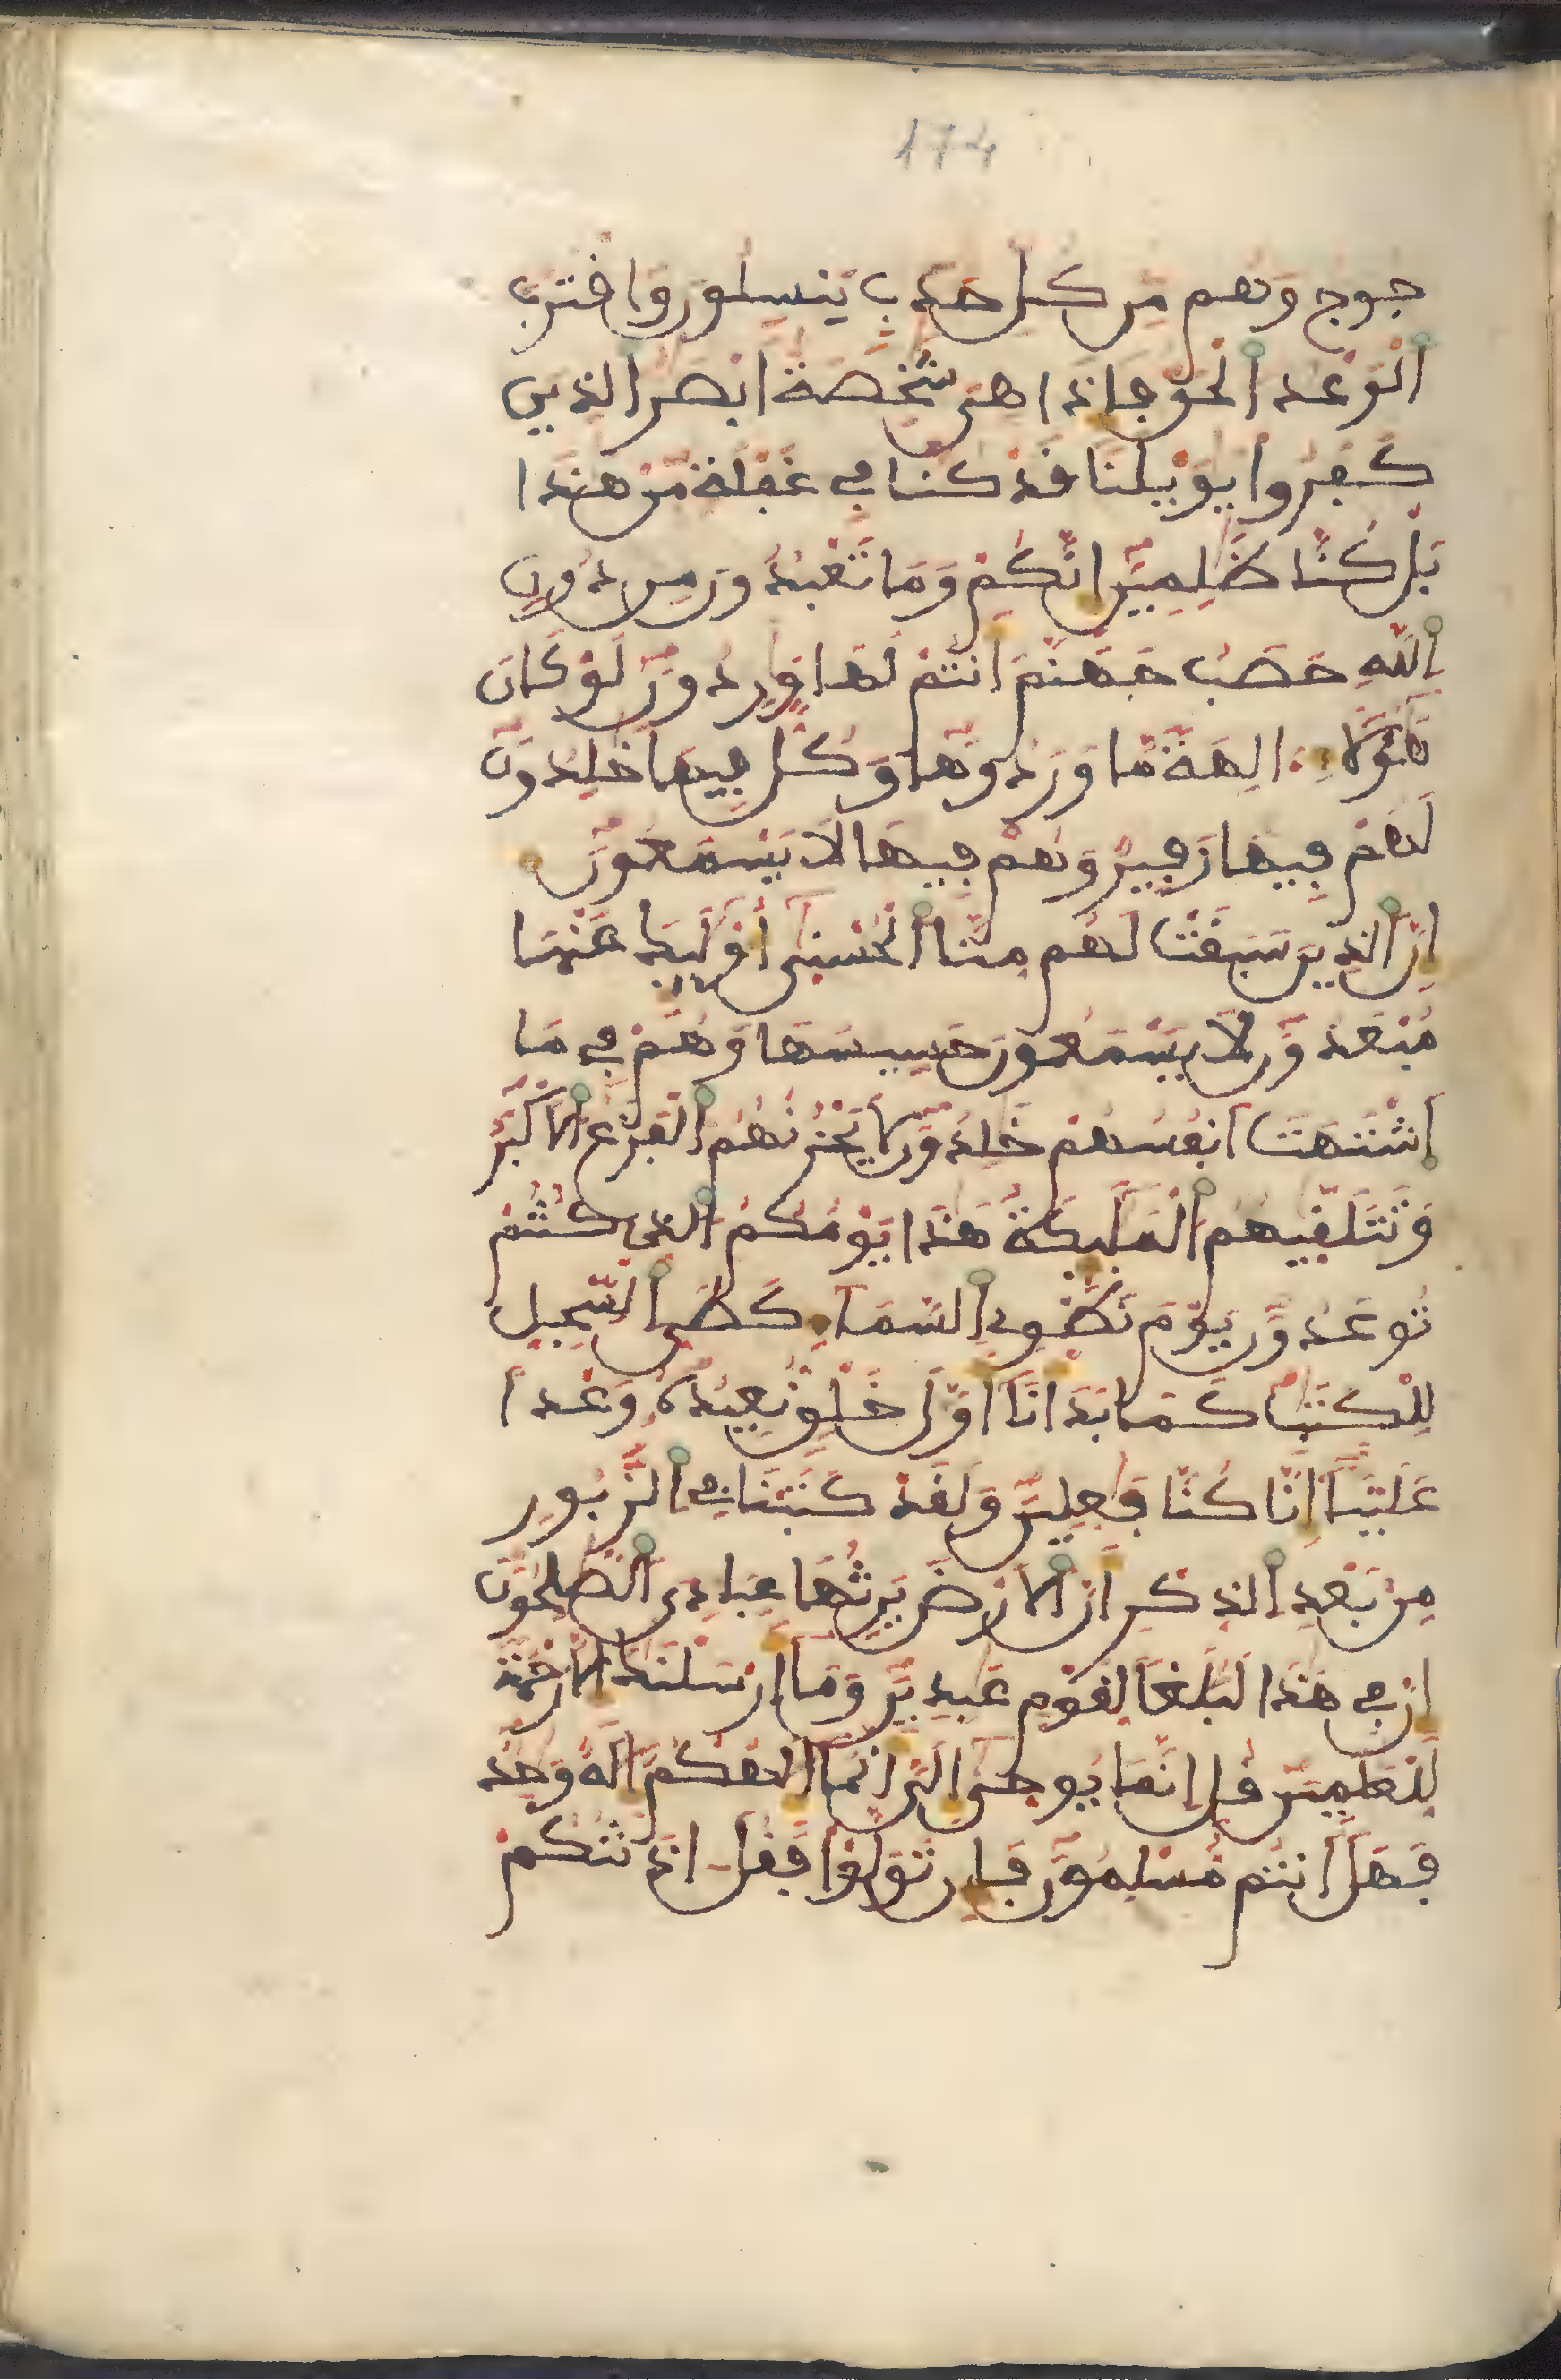 174
جوج وَهُم مِّن كُلِّ حَدَبٍ يَنسِلُونَ وَاقْتَرَبَ
اَ۬لْوَعْدُ اُ۬لْحَقُّ فَإِذَا هِىَ شَٰخِصَةٌ اَبْصَٰرُ اُ۬لذِينَ
كَفَرُواْ يَٰوَيْلَنَا قَدْ كُنَّا فِے غَفْلَةٍ مِّنْ هَٰذَا
بَلْ كُنَّا ظَٰلِمِينَ إِنَّكُمْ وَمَا تَعْبُدُونَ مِن دُونِ
اِ۬للَّهِ حَصَبُ جَهَنَّمَ أَنتُمْ لَهَا وَٰرِدُونَ لَوْ كَانَ
هَٰٓؤُلَآءِ ءَالِهَةً مَّا وَرَدُوهَا وَكُلٌّ فِيهَا خَٰلِدُونَ
لَهُمْ فِيهَا زَفِيرٌ وَهُمْ فِيهَا لَا يَسْمَعُونَ
إِنَّ اَ۬لذِينَ سَبَقَتْ لَهُم مِّنَّا اَ۬لْحُسْنَىٰٓ أُوْلَٰٓئِكَ عَنْهَا
مُبْعَدُونَ لَا يَسْمَعُونَ حَسِيسَهَا وَهُمْ فِے مَا
اَ۪شْتَهَتَ اَنفُسُهُمْ خَٰلِدُونَ لَا يَحْزُنُهُمُ اُ۬لْفَزَعُ اُ۬لَاكْبَرُ
وَتَتَلَقَّيٰهُمُ اُ۬لْمَلَٰٓئِكَةُ هَٰذَا يَوْمُكُمُ اُ۬لذِى كُنتُمْ
تُوعَدُونَ يَوْمَ نَطْوِے اِ۬لسَّمَآءَ كَطَىِّ اِ۬لسِّجِلِّ
لِلْكِتَٰبِ كَمَا بَدَأْنَآ أَوَّلَ خَلْقٍ نُّعِيدُهُۥ وَعْداً
عَلَيْنَآ إِنَّا كُنَّا فَٰعِلِينَ وَلَقَدْ كَتَبْنَا فِے اِ۬لزَّبُورِ
مِنۢ بَعْدِ اِ۬لذِّكْرِ أَنَّ اَ۬لَارْضَ يَرِثُهَا عِبَادِىَ اَ۬لصَّٰلِحُونَ
إِنَّ فِے هَٰذَا لَبَلَٰغاً لِّقَوْمٍ عَٰبِدِينَ وَمَآ أَرْسَلْنَٰكَ إِلَّا رَحْمَةً
لِّلْعَٰلَمِينَ قُلِ اِنَّمَا يُوحَىٰٓ إِلَىَّ أَنَّمَآ إِلَٰهُكُمُۥٓ إِلَٰهٌ وَٰحِدٌ
فَهَلَ اَنتُم مُّسْلِمُونَ فَإِن تَوَلَّوْاْ فَقُلَ اٰذَنتُكُمْ